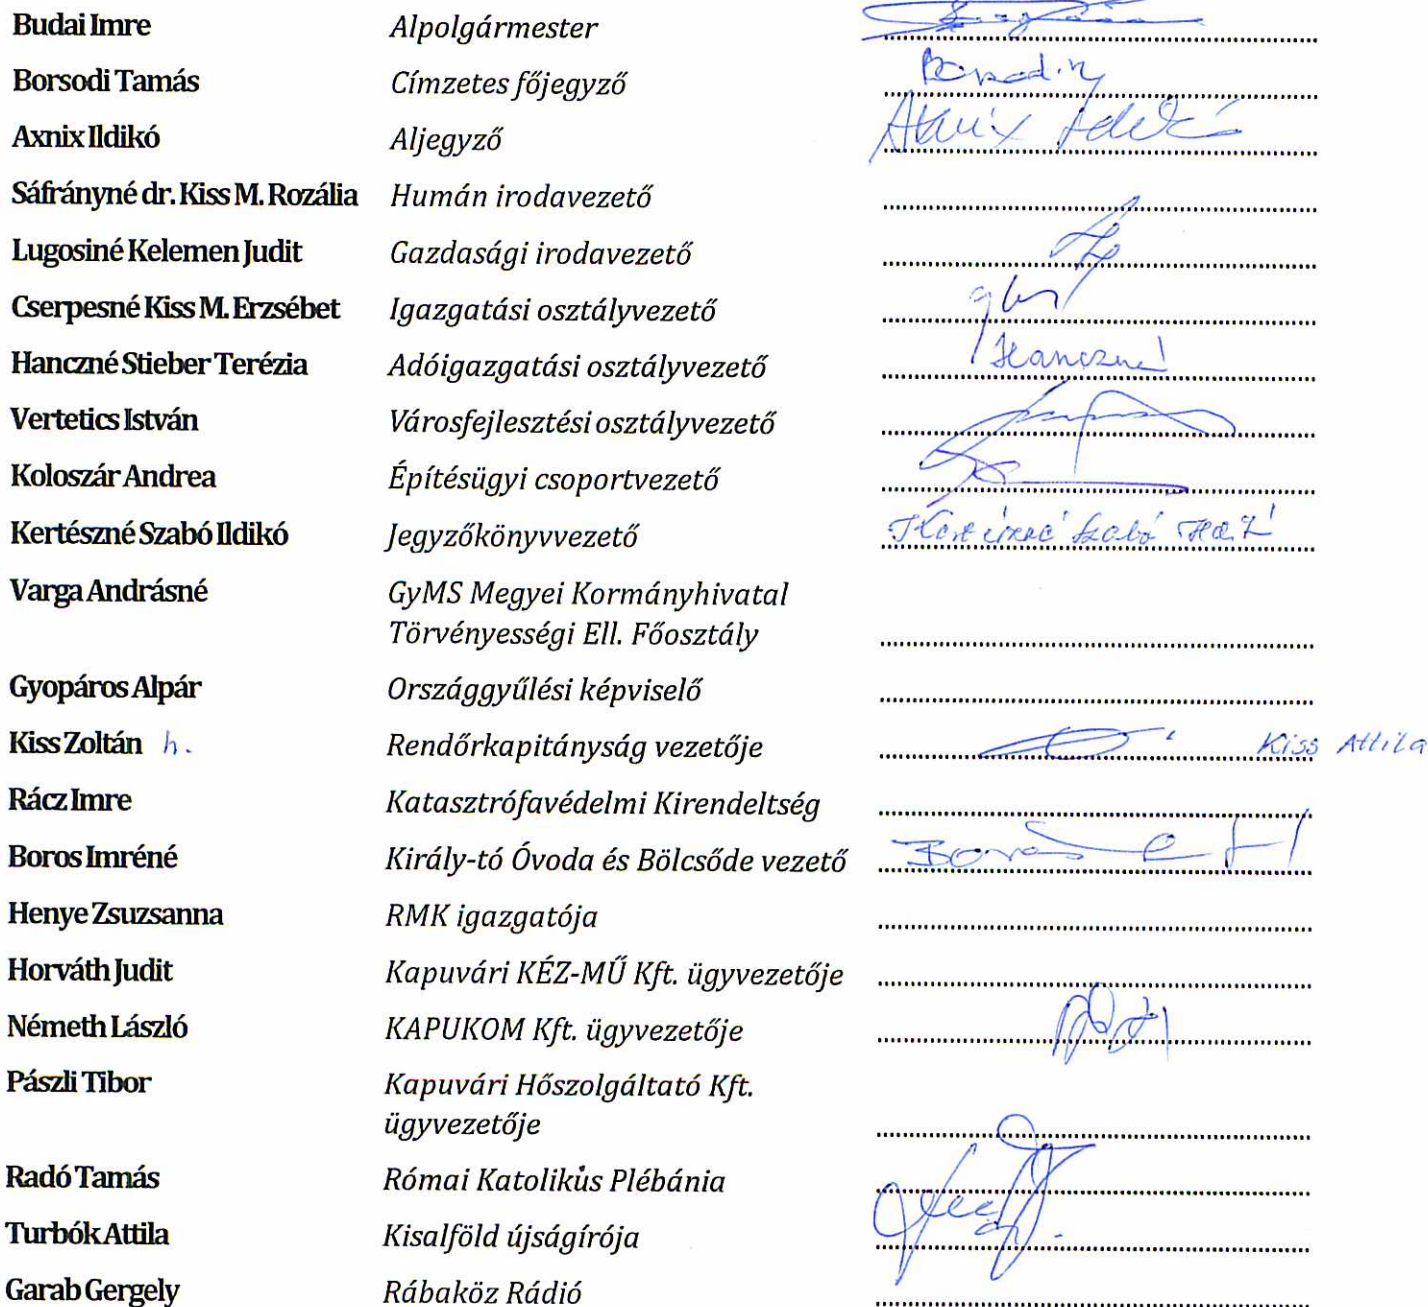 Budai Imre Alpolgármester
Borsodi Tamás Címzetes főjegyző
Axnix Ildikó Aljegyző Axnix Ildikó
Sáfrányné dr. Kiss M. Rozália Humán irodavezető
Lugosiné Kelemen Judit Gazdasági irodavezető
Cserpesné Kiss M. Erzsébet Igazgatási osztályvezető
Hanczné Stieber Terézia Adóigazgatási osztályvezető Hanczné
Vertetics István Városfejlesztési osztályvezető
Koloszár Andrea Építésügyi csoportvezető
Kertészné Szabó Ildikó Jegyzőkönyvvezető Kertészné Szabó
Varga Andrásné GyMS Megyei Kormányhivatal
Törvényességi Ell. Főosztály
Gyopáros Alpár Országgyűlési képviselő
Kiss Zoltán h. Rendőrkapitányság vezetője Kiss Attila
Rácz Imre Katasztrófavédelmi Kirendeltség
Boros Imréné Király-tó Óvoda és Bölcsőde vezető Boros
Henye Zsuzsanna RMK igazgatója
Horváth Judit Kapuvári KÉZ-MŰ Kft. ügyvezetője
Németh László KAPUKOM Kft. ügyvezetője
Pászli Tibor Kapuvári Hőszolgáltató Kft.
ügyvezetője
Radó Tamás Római Katolikus Plébánia
Turbók Attila Kisalföld újságírója
Garab Gergely Rábaköz Rádió